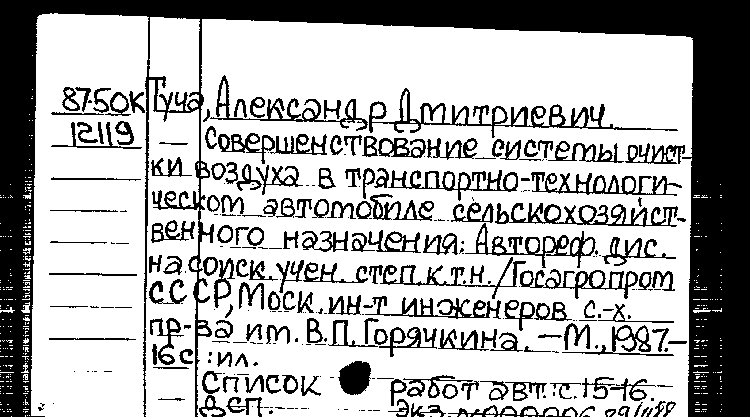 87-50K Туча, Александр Дмитриевич.
12119 — Совершенствование системы очист-
ки воздуха в транспортно-технологи-
ческом автомобиле сельскохозяйст-
венного назначения: Автореф. дис.
на соиск. учен. степ. к.т.н. / Госагропром
СССР, Моск. ин-т инженеров с.-х.
пр-ва им. В.П. Горячкина. — М., 1987.—
16 с. : ил.
— Список работ авт.: с. 15-16.
ДСП. Экз.